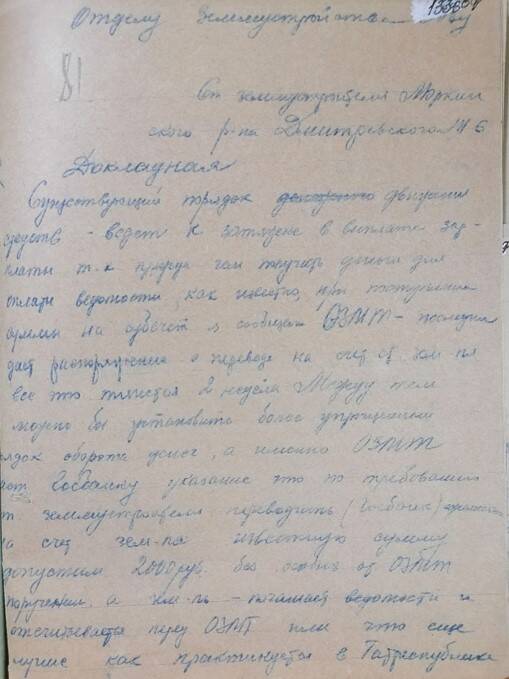 Отделу землеустройства
13360
81
От землеустроителя Моркин
ского р-на Дмитревского И Б
Докладная
Существующий порядок движения
средств - ведет к затяжке в выплате зар-
платы т.к прежде чем получить деньги для
оплаты ведомости, как известно, при поступлении
суммы на субсчет я сообщаю ОЗМТ - последний
дает распоряжение о переводе на счет
все это тянется 2 недели Между тем
можно бы установить более упрощенный
порядок оборота денег, а именно ОЗМТ
дает Госбанку указание что по требованию
от землеустроителя переводить (Госбанк)
на счет зем-ля известную сумму
допустим 2000 руб. без особых от ОЗМТ
поручений, а зем-ль - погашает ведомости и
отсчитывается перед ОЗМТ или что еще
лучше как практикуется в Татреспублике